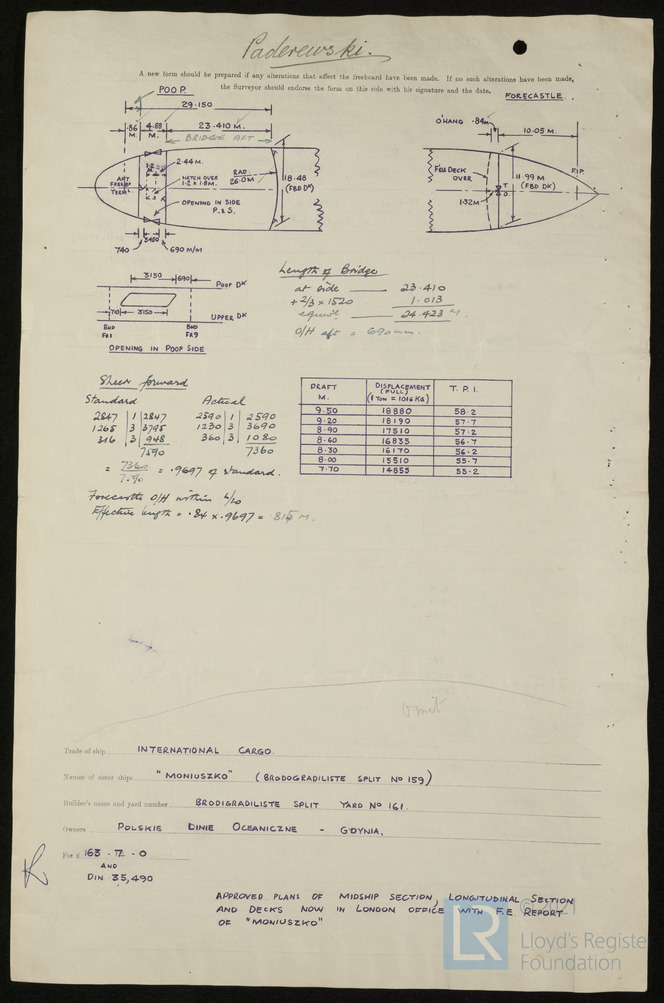 Paderewski.
A new form should be prepared if any alterations that affect the freeboard have been made. If no such alterations have been made,
the Surveyor should endorse the form on this side with his signature and the date.
POOP.
FORECASTLE.
29.150
.86 M.
4.88 M.
23.410 M.
BRIDGE AFT
O'HANG .84M
10.05 M.
1.2
2.44 M.
HATCH OVER
1.2 x 1.8M.
RAD.
26.0M
18.48
(FBD DK)
AFT
TERM.
OPENING IN SIDE
P. & S.
740
3450
690 M/M
F'CLE DECK
OVER
1.32M
11.99 M
(FBD DK)
F.P.
3150
690
POOP DK
710
3150
UPPER DK
BHD
FR 1
BHD
FR 9
OPENING IN POOP SIDE
Length of Bridge
at side — 23.410
+ 2/3 x 1520 1.013
equiv — 24.423 M.
O/H aft = 690mm.
Sheer forward
Standard Actual
2847 1 2847 2590 1 2590
1265 3 3795 1230 3 3690
316 3 948 360 3 1080
7590 7360
= 7360/7590 = .9697 of standard.
Forecastle O/H within L/20
Effective length = .84 x .9697 = .815 M.
DRAFT M. DISPLACEMENT (FULL) (1 TON = 1016 KG) T. P. I.
9.50 18880 58.2
9.20 18190 57.7
8.90 17510 57.2
8.60 16835 56.7
8.30 16170 56.2
8.00 15510 55.7
7.70 14855 55.2
Omit
Trade of ship INTERNATIONAL CARGO.
Names of sister ships "MONIUSZKO" (BRODOGRADILISTE SPLIT No 159)
Builder's name and yard number BRODIGRADILISTE SPLIT YARD No 161.
Owners POLSKIE LINIE OCEANICZNE - GDYNIA.
Fee £ 163 - 7 - 0
AND
DIN 35,490
APPROVED PLANS OF MIDSHIP SECTION, LONGITUDINAL SECTION
AND DECKS NOW IN LONDON OFFICE WITH F.E. REPORT
OF "MONIUSZKO"
© 2021
LR
Lloyd's Register
Foundation